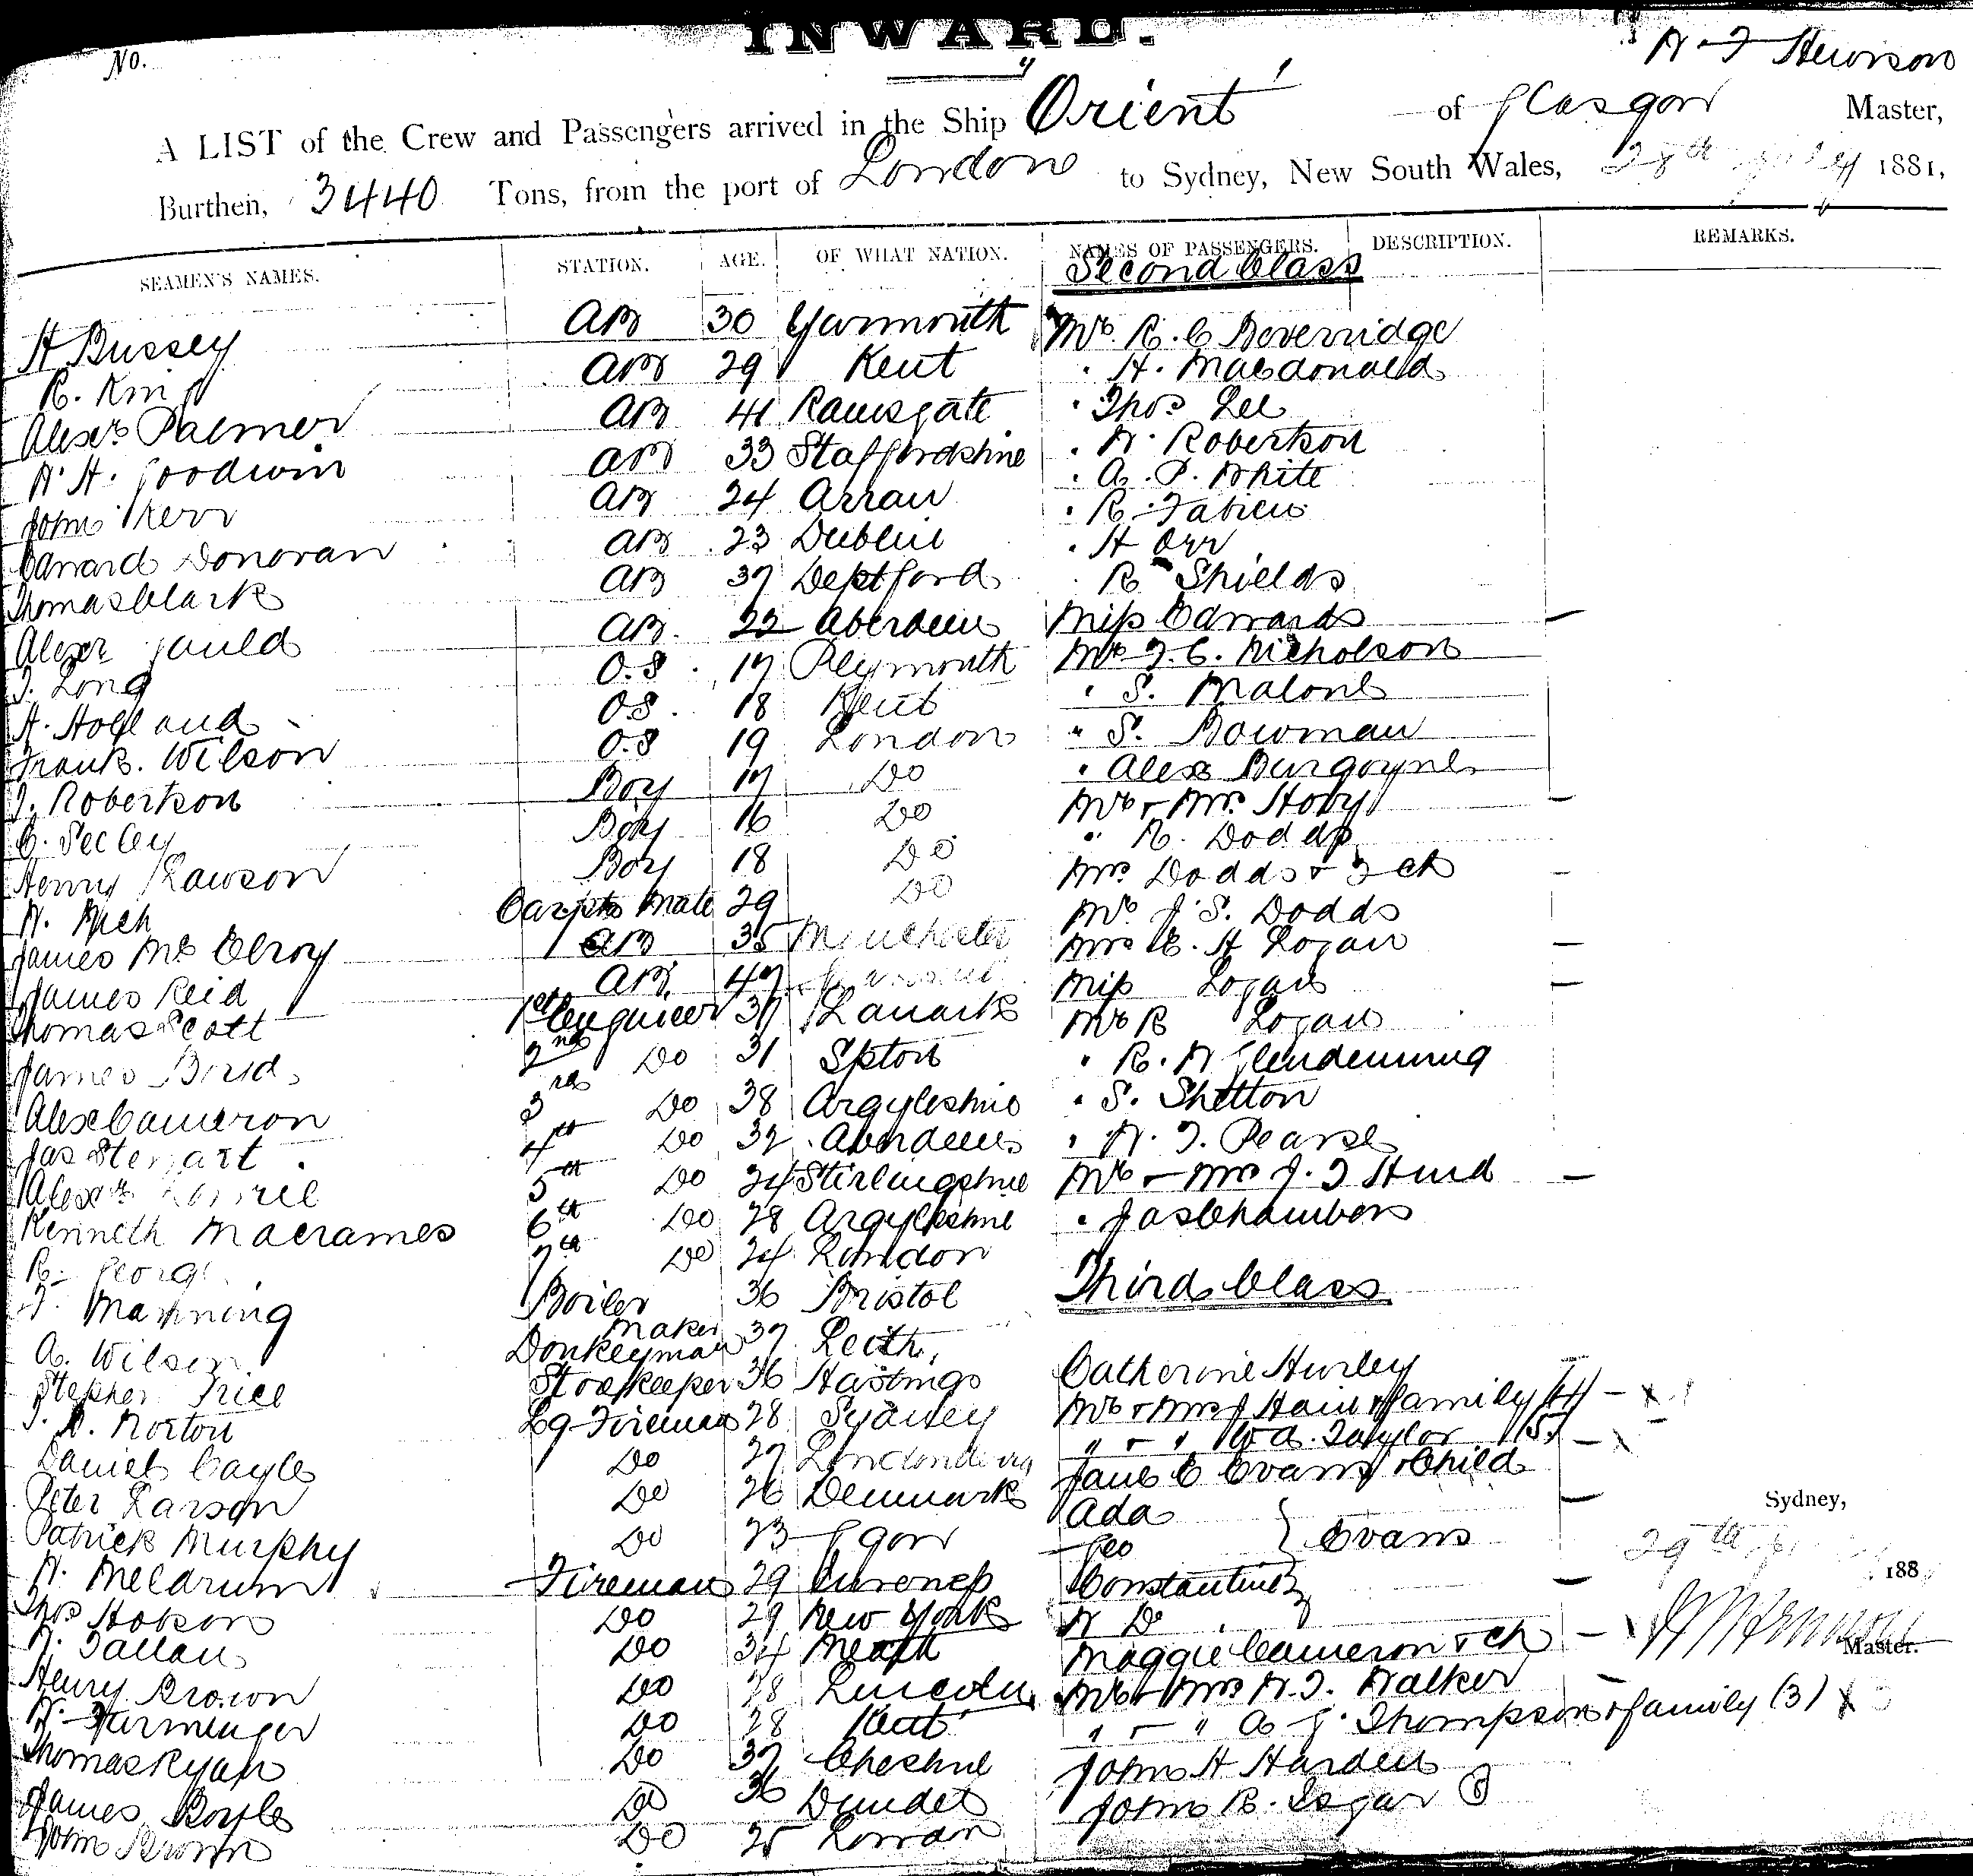 INWARD.
No.
W. F. Hewison
A LIST of the Crew and Passengers arrived in the Ship "Orient" of Glasgow Master,
Burthen, 3440 Tons, from the port of London to Sydney, New South Wales, 28th 1881,
SEAMEN'S NAMES. STATION. AGE. OF WHAT NATION. NAMES OF PASSENGERS. DESCRIPTION. REMARKS.
Second Class
H Bussey AB 30 Yarmouth Mr. R. C Beverridge
R. King AB 29 Kent " H. Macdonald
Alexr Palmer AB 41 Ramsgate " Thos Lee
W. H. Goodwin AB 33 Staffordshire " W. Robertson
John Kerr AB 24 Arran " A. P. White
Edward Donovan AB 23 Dublin " R. Fabien
Thomas Clark AB 37 Deptford " H Orr
Alexr Gauld AB. 22 Aberdeen " R Shields
J. Long O.S. 17 Plymouth Miss Edwards
H. Holland O.S. 18 Kent Mr J. C. Nicholson
Frank. Wilson O.S 19 London " S. Malone
J. Robertson Boy 17 Do " S. Bowman
C. Seeley Boy 16 Do " Alex Burgoyne
Henry Rawson Boy 18 Do Mr & Mrs Hoby
W. Rich Carptrs Mate 29 Do " R. Dodds
James Mc Elroy AB 35 Mrs Dodds & 2 ch
James Reid AB. 47 Mr J. S. Dodds
Thomas Scott 1st Engineer 37 Lanark Mrs E. H Logan
James Bird 2nd Do 31 Spton Miss Logan
Alex Cameron 3rd Do 38 Argyleshire Mr R Logan
Jas Stewart 4th Do 32 Aberdeen " R. W Glendenning
Alexr 5th Do 24 Stirlingshire " S. Shetton
Kenneth Macrames 6th Do 28 Argyleshire " W. J. Pearse
R. George 7th Do 24 London Mr & Mrs J. J Hurd
F. Manning Boiler Maker 36 Bristol " Jas Chambers
Third Class
A. Wilson Donkeyman 37 Leith,
Stephen Price Storekeeper 36 Hastings Catherine Hurley
J. W. Norton Lg Fireman 28 Sydney Mr & Mrs J Hain & family (4)
Daniel Cayle Do 27 Londonderry " & " W A. Taylor (5)
Peter Larson Do 26 Denmark Jane C Evans & Child
Patrick Murphy Do 23 Ada
W. Meldrum Fireman 29 Geo } Evans
Thos Hobson Do 29 New York Constantine
W. Fallan Do 34 Meath W D
Henry Brown Do 28 Lincoln Maggie Cameron & ch
W. Do 28 Kent Mr & Mrs W. J. Walker
Thomas Ryan Do 37 Cheshire " & " A J. Thompson & family (3)
James Boyle Do 36 Dundee John H Harden
John Brown Do 25 John R. Isgar
Sydney,
29th
188
Master.